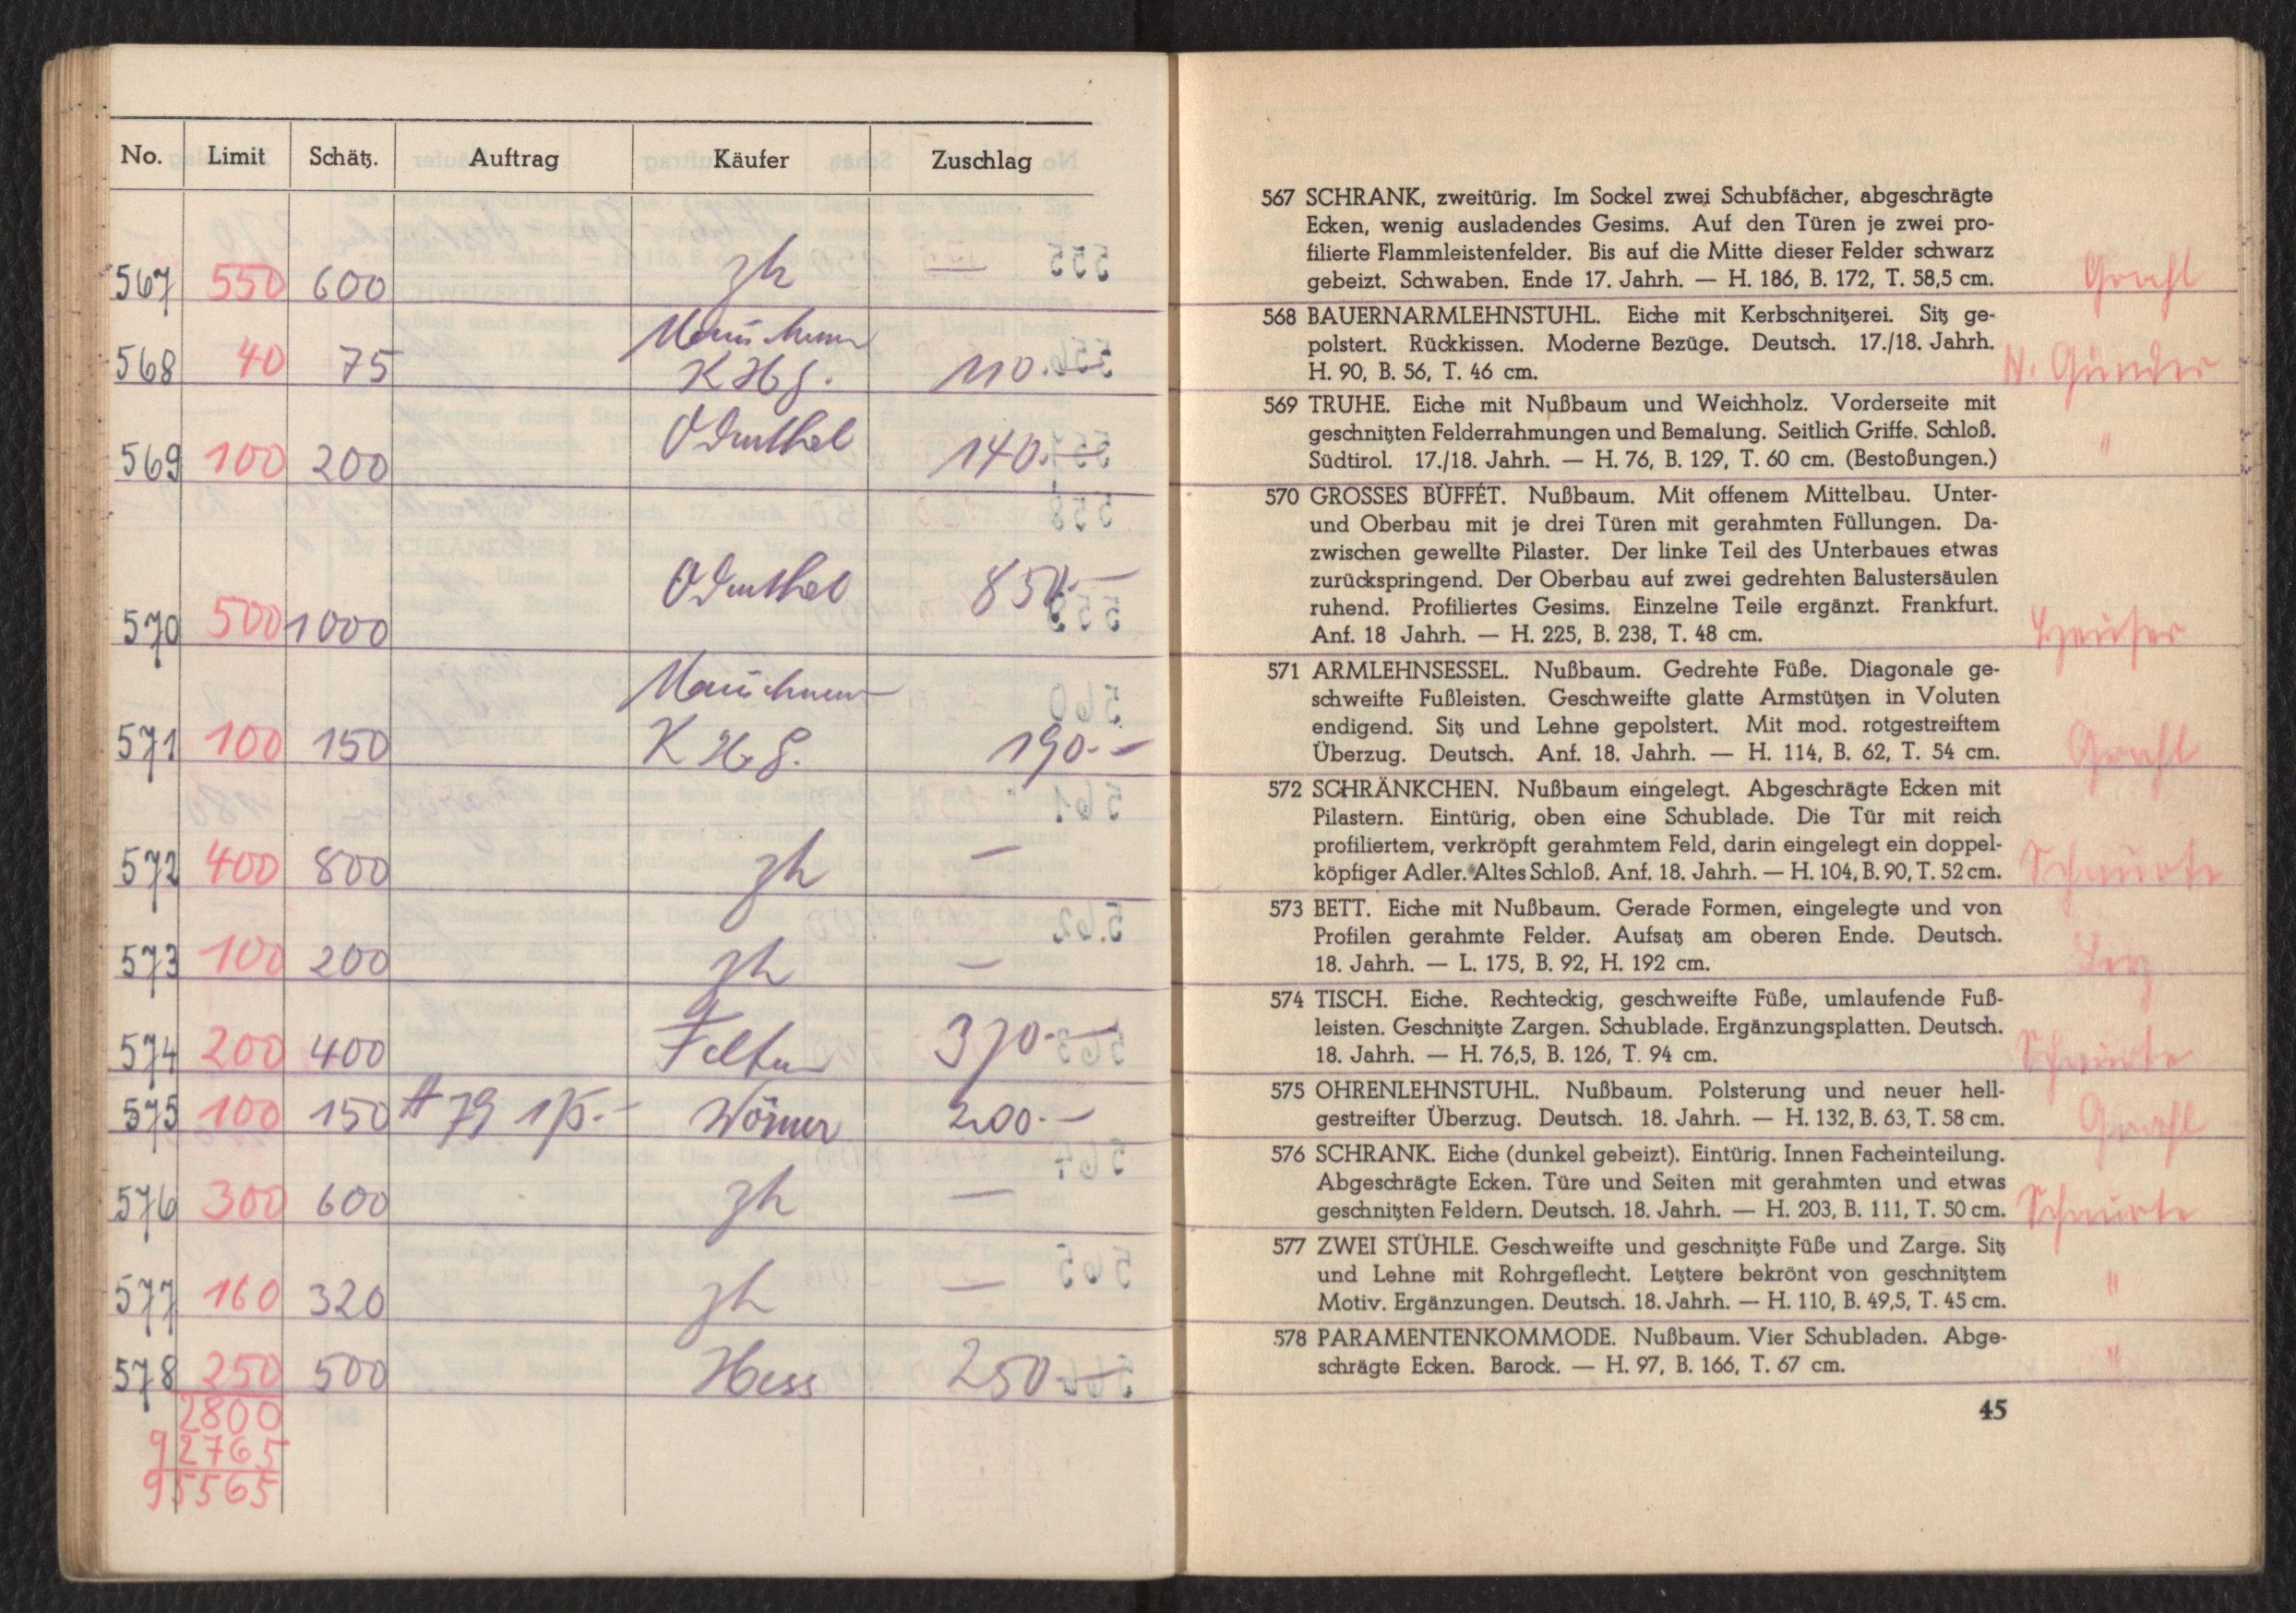 No. Limit Schätz. Auftrag Käufer Zuschlag
567 550 600 zh —
568 40 75 K Hbg. 110.—
569 100 200 Odenthal 140.—
570 500 1000 Odenthal 850.—
571 100 150 K Hbg. 190.—
572 400 800 zh —
573 100 200 zh —
574 200 400 370.—
575 100 150 A 79 175.— Wörner 200.—
576 300 600 zh —
577 160 320 zh —
578 250 500 Hess 250.—
2800
92765
95565
567 SCHRANK, zweitürig. Im Sockel zwei Schubfächer, abgeschrägte
Ecken, wenig ausladendes Gesims. Auf den Türen je zwei pro-
filierte Flammleistenfelder. Bis auf die Mitte dieser Felder schwarz
gebeizt. Schwaben. Ende 17. Jahrh. — H. 186, B. 172, T. 58,5 cm. Grahl
568 BAUERNARMLEHNSTUHL. Eiche mit Kerbschnitzerei. Sitz ge-
polstert. Rückkissen. Moderne Bezüge. Deutsch. 17./18. Jahrh.
H. 90, B. 56, T. 46 cm. N. Günder
569 TRUHE. Eiche mit Nußbaum und Weichholz. Vorderseite mit
geschnitzten Felderrahmungen und Bemalung. Seitlich Griffe. Schloß. "
Südtirol. 17./18. Jahrh. — H. 76, B. 129, T. 60 cm. (Bestoßungen.)
570 GROSSES BÜFFÉT. Nußbaum. Mit offenem Mittelbau. Unter-
und Oberbau mit je drei Türen mit gerahmten Füllungen. Da-
zwischen gewellte Pilaster. Der linke Teil des Unterbaues etwas
zurückspringend. Der Oberbau auf zwei gedrehten Balustersäulen
ruhend. Profiliertes Gesims. Einzelne Teile ergänzt. Frankfurt.
Anf. 18 Jahrh. — H. 225, B. 238, T. 48 cm. Häuser
571 ARMLEHNSESSEL. Nußbaum. Gedrehte Füße. Diagonale ge-
schweifte Fußleisten. Geschweifte glatte Armstützen in Voluten
endigend. Sitz und Lehne gepolstert. Mit mod. rotgestreiftem
Überzug. Deutsch. Anf. 18. Jahrh. — H. 114, B. 62, T. 54 cm. Grahl
572 SCHRÄNKCHEN. Nußbaum eingelegt. Abgeschrägte Ecken mit
Pilastern. Eintürig, oben eine Schublade. Die Tür mit reich
profiliertem, verkröpft gerahmtem Feld, darin eingelegt ein doppel-
köpfiger Adler. Altes Schloß. Anf. 18. Jahrh. — H. 104, B. 90, T. 52 cm. Schnürte
573 BETT. Eiche mit Nußbaum. Gerade Formen, eingelegte und von
Profilen gerahmte Felder. Aufsatz am oberen Ende. Deutsch.
18. Jahrh. — L. 175, B. 92, H. 192 cm.
574 TISCH. Eiche. Rechteckig, geschweifte Füße, umlaufende Fuß-
leisten. Geschnitzte Zargen. Schublade. Ergänzungsplatten. Deutsch.
18. Jahrh. — H. 76,5, B. 126, T. 94 cm. Schnürte
575 OHRENLEHNSTUHL. Nußbaum. Polsterung und neuer hell-
gestreifter Überzug. Deutsch. 18. Jahrh. — H. 132, B. 63, T. 58 cm. Grahl
576 SCHRANK. Eiche (dunkel gebeizt). Eintürig. Innen Facheinteilung.
Abgeschrägte Ecken. Türe und Seiten mit gerahmten und etwas
geschnitzten Feldern. Deutsch. 18. Jahrh. — H. 203, B. 111, T. 50 cm. Schnürte
577 ZWEI STÜHLE. Geschweifte und geschnitzte Füße und Zarge. Sitz
und Lehne mit Rohrgeflecht. Letztere bekrönt von geschnitztem "
Motiv. Ergänzungen. Deutsch. 18. Jahrh. — H. 110, B. 49,5, T. 45 cm.
578 PARAMENTENKOMMODE. Nußbaum. Vier Schubladen. Abge-
schrägte Ecken. Barock. — H. 97, B. 166, T. 67 cm. "
45